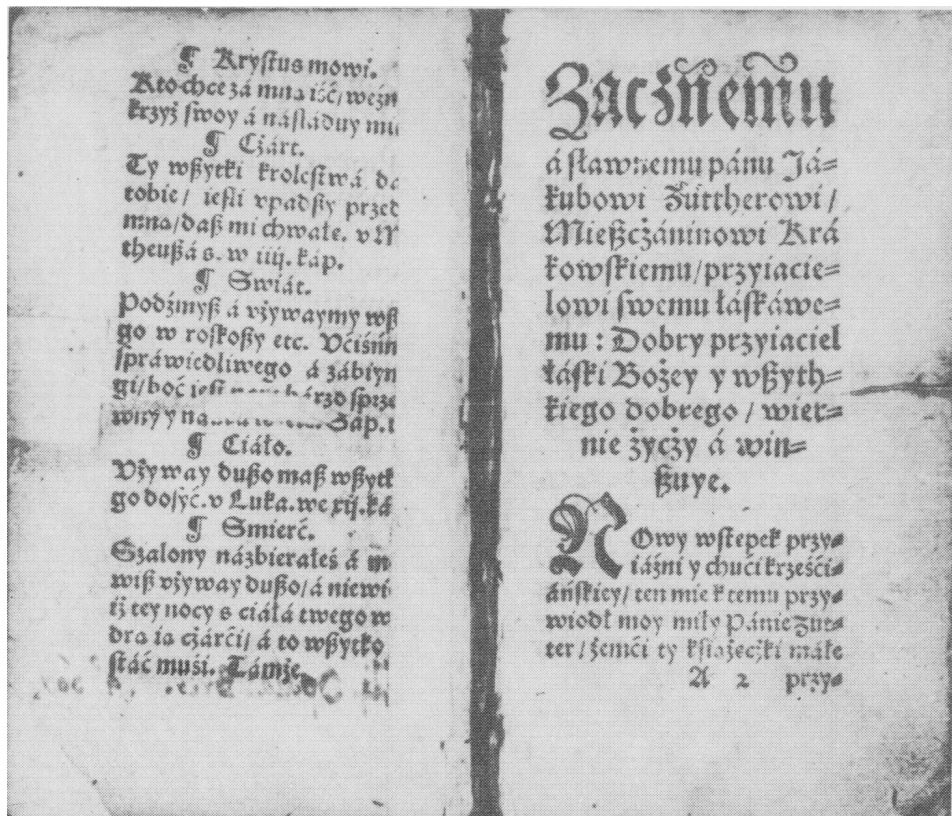 ¶ Krystus mowi.
Kto chce zá mną iść/ weźm
krzyż swoy á násláduy mi
¶ Cżárt.
Ty wßytki krolestwá dá
tobie/ iesli vpadßy przed
mną/ daß mi chwałę. v M
theußá s. w iiij. káp.
¶ Swiát.
Podźmyß á vżywaymy wß
go w roskoßy etc. Vćiśnim
spráwiedliwego á zábiym
gi/ boć iest bárzo sprze
wny y Sap. i
¶ Ciáło.
Vżyway dußo maß wßytk
go dosyć. v Luka. we xij. ká
¶ Smierć.
Szalony názbierałeś á m
wiß vżyway dußo/ á niewi
iż tey nocy s ciáłá twego w
dra ią cżárći/ á to wßytko
stáć muśi. Támże.
Zacznemu
á sławnemu pánu Já=
kubowi Füttherowi/
Mießcżáninowi Krá
kowskiemu/ przyiacie=
lowi swemu łáskáwe=
mu : Dobry przyiaciel
łáski Bożey y wßyth=
kiego dobrego / wier=
nie życży á win=
ßuye.
NOwy wstępek przy=
iáźni y chući krześći=
áńskiey/ ten mie k temu przy=
wiodł moy miły Pánie Fut=
ter / żemći ty kśiążecżki máłe
A 2 przy=